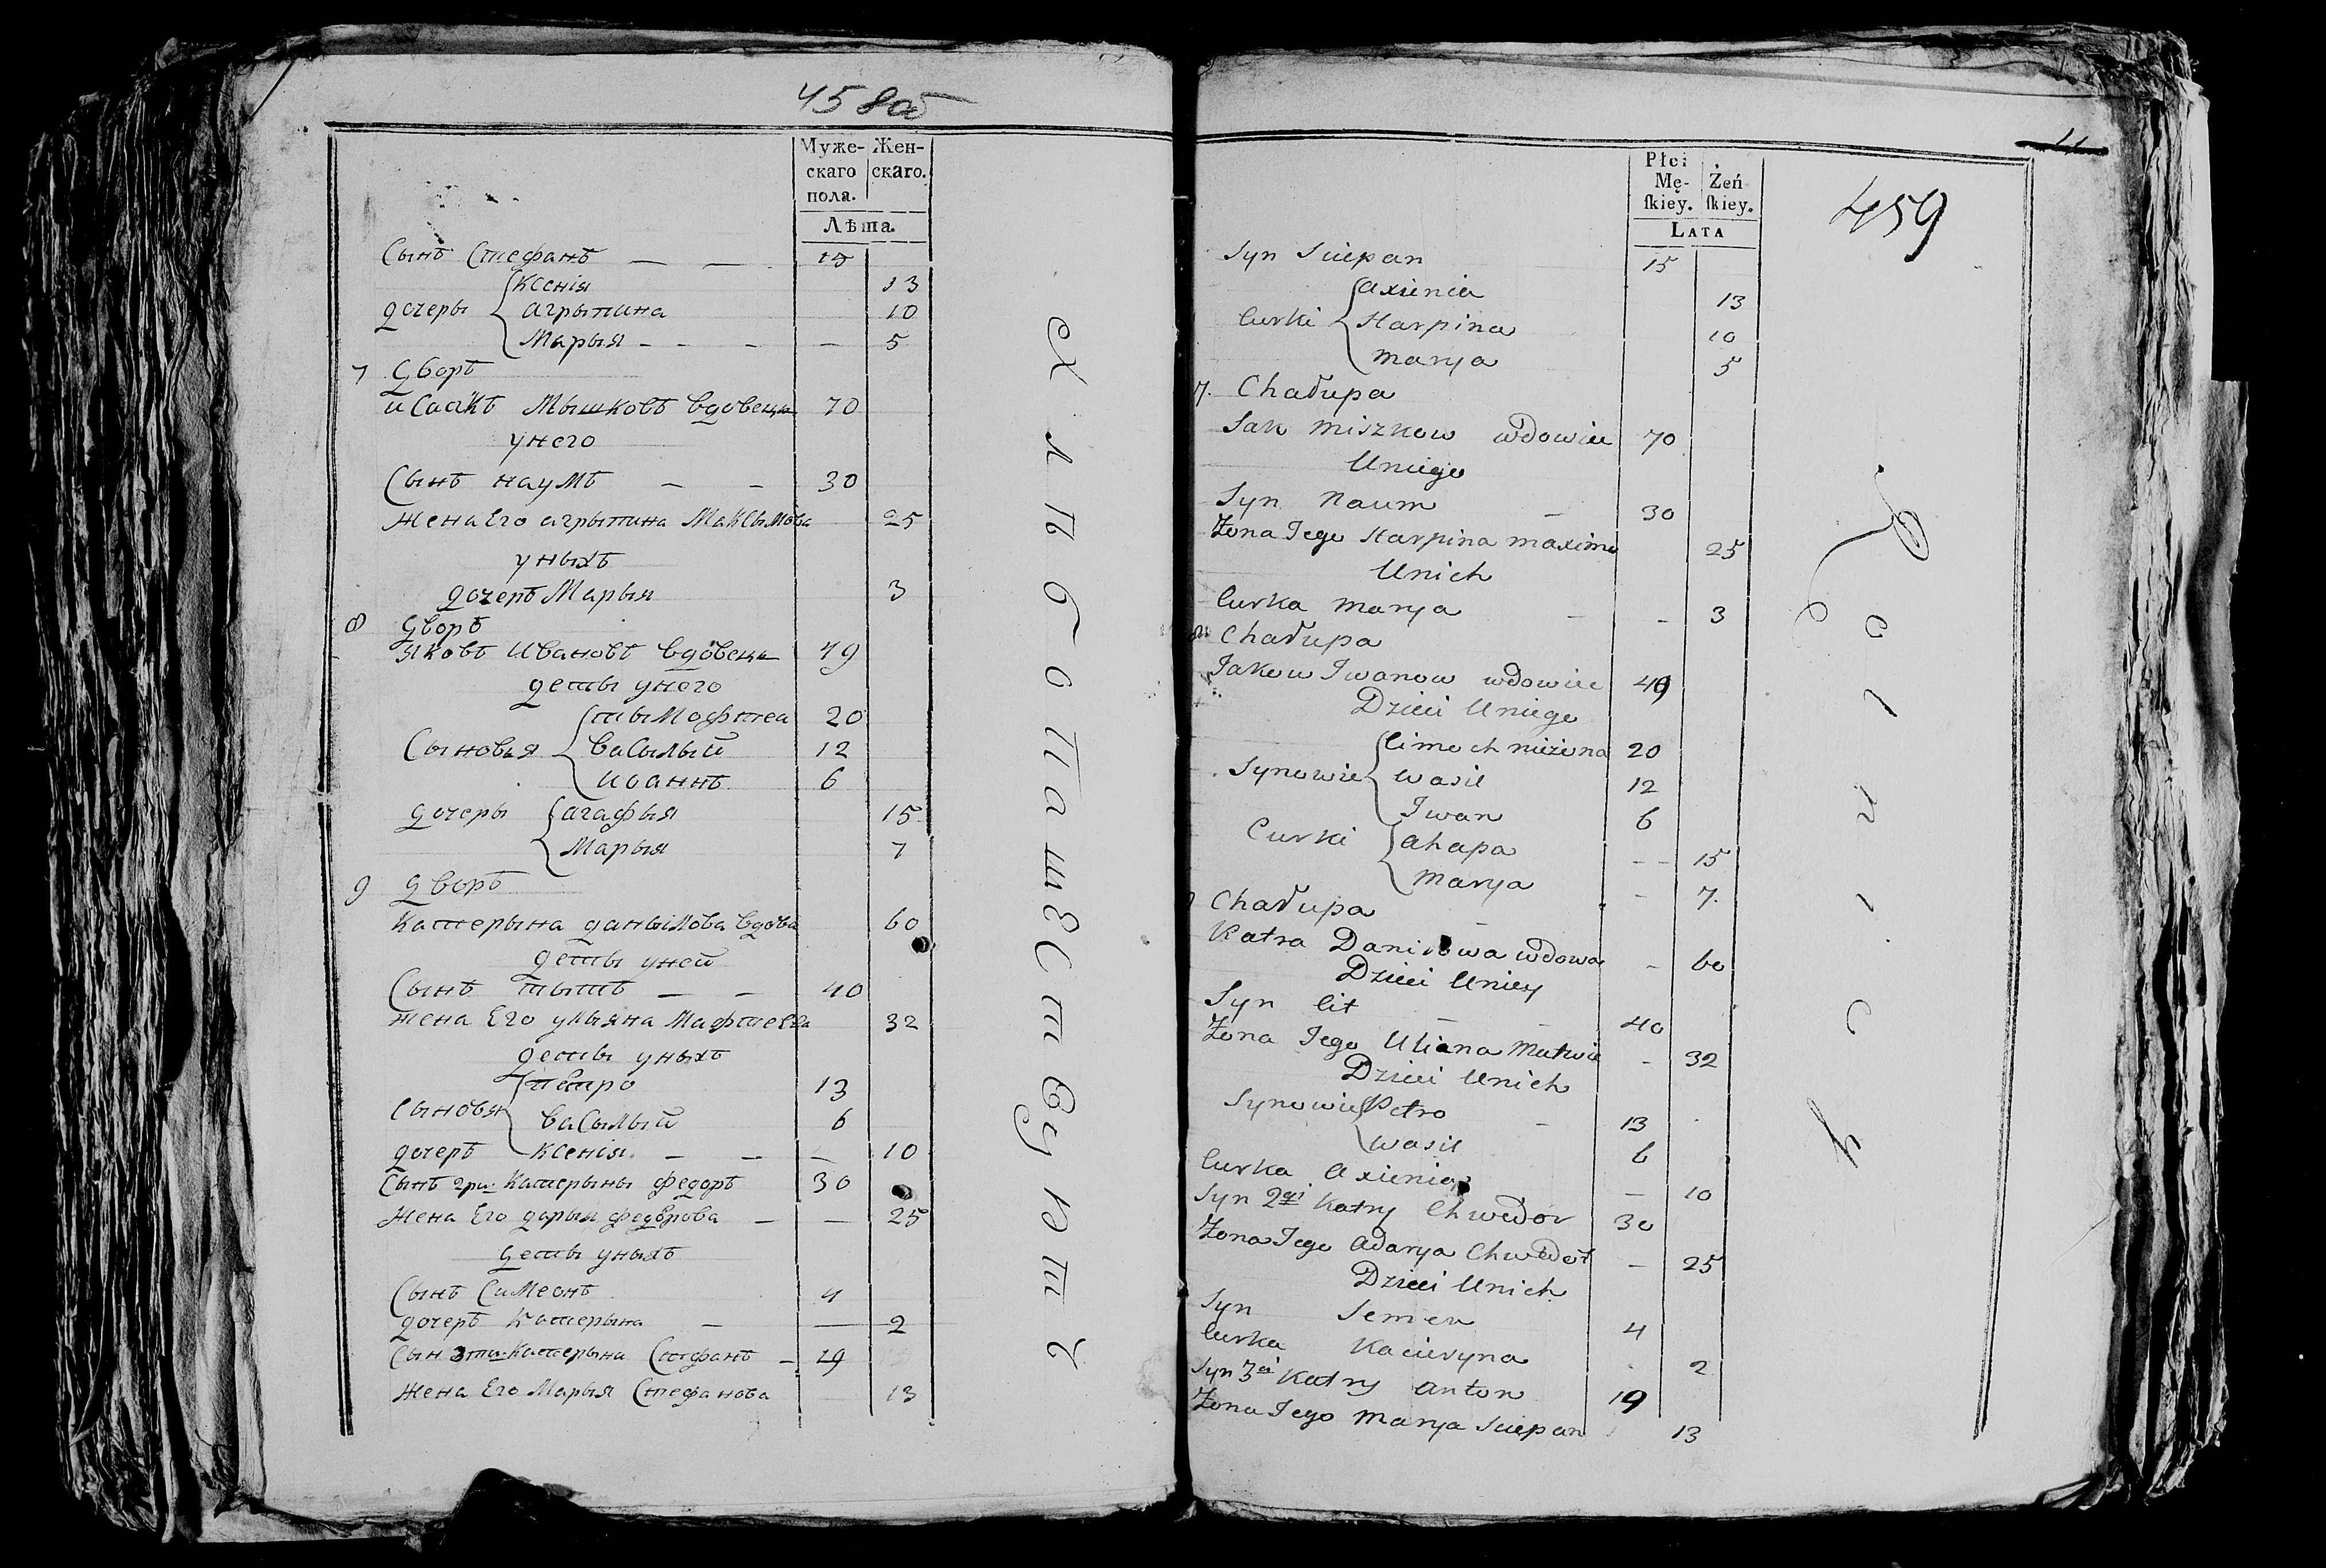 458об
Муже- Жен-
скаго скаго.
пола.
Лѣта.
Сынъ Стефанъ — — 15
Ксенія 13
дочеры агрыпина 10
Марыя - - - — 5
7 Дворъ
исаакъ Мышковъ вдовецъ 70
унего
Сынъ наумъ — — 30
жена Его агрыпина Максымова 25
уныхъ
дочеръ Марыя 3
8 Дворъ
яковъ Ивановъ вдовецъ 49
деты унего
20
Сыновья васылый 12
иоаннъ 6
дочеры агафыя 15
Марыя 7
9 Дворъ
Катерына данылова вдова 60
деты уней
Сынъ тытъ — — 40
жена Его улыяна Мафтеева 32
деты уныхъ
петро 13
Сыновя васылый 6
дочеръ ксенія — — — 10
Сынъ Катерыны федоръ 30
жена Его дарыя федорова — — 25
деты уныхъ
Сынъ Симеонъ 4
дочеръ Катерына — — 2
Сын 3ти Катерына Стефанъ — 19
жена Его Марыя Стефанова 13
хлѣбопашествуетъ
459
Płci
Mę- Żeń
ſkiey. ſkiey.
LATA
Syn Sciepan 15
Axienia 13
Curki Harpina 10
Marya 5
7. Chałupa
Sak Miszkow wdowiec 70
Uniego
Syn Naum — 30
Żona Jego Harpina Maxima 25
Unich
Curka Marya — - 3
8. Chałupa
Jakow Iwanow wdowiec 49
Dzieci Uniego
Cimoch nieżona 20
Synowie Wasil 12
Iwan 6
Curki Ahapa — 15
Marya - 7.
Chałupa
Katra Daniłowa wdowa - 60
Dzieci Uniey
Syn Cit — — 40
Żona Jego Uliana Matwie - 32
Dzieci Unich
Synowie Petro - 13
Wasil 6
Curka Axienia — 10
Syn 2gi Katry Chwedor 30
Żona Jego Adarya Chwedoř - 25
Dzieci Unich
Syn Semen 4
Curka Kacieryna 2
Syn 3ci Katry Anton 19
Żona Jego Marya Sciepan 13
Rolnicy